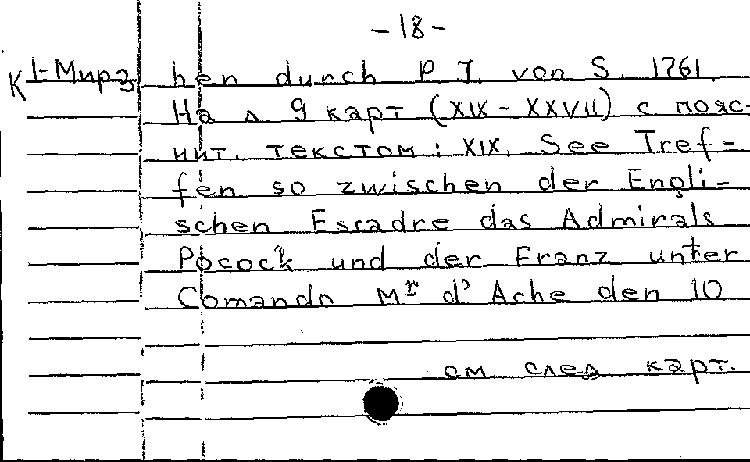 -18-
К 1-Мирз hen durch P. J. von S. 1761.
На л 9 карт (XIX-XXVII) с пояс-
нит. текстом: XIX. See Tref=
fen so zwischen der Engli-
schen Escadre das Admirals
Pocock und der Franz unter
Comando Mr d'Ache den 10
см след карт.